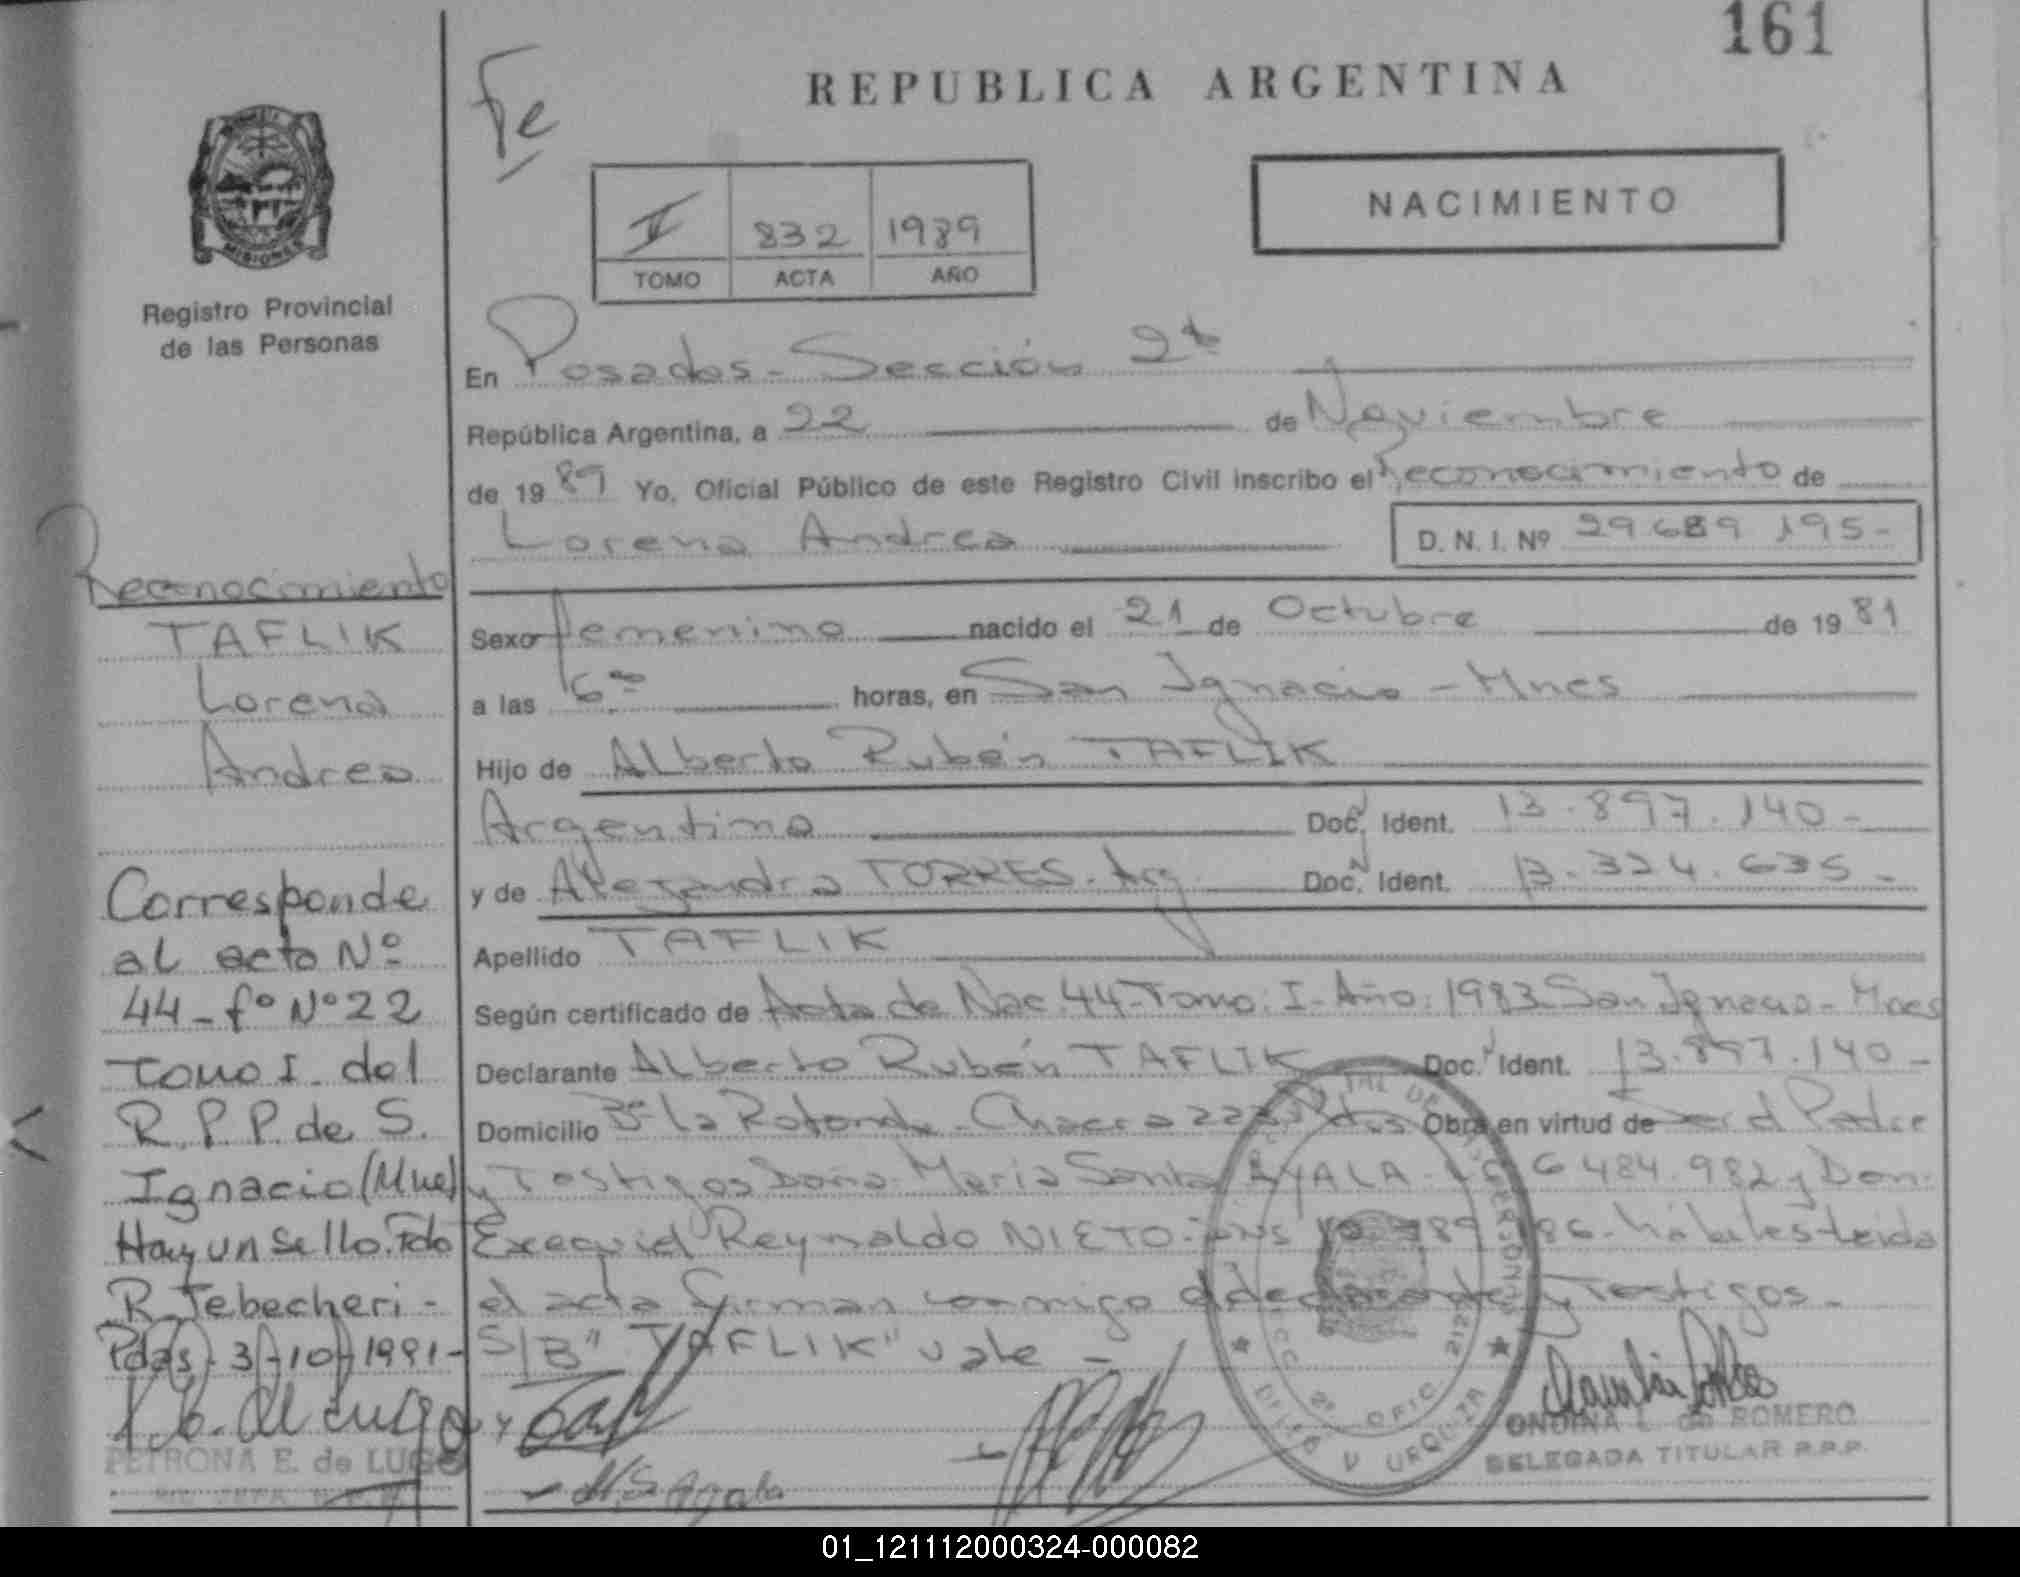 161
Fe
REPUBLICA ARGENTINA
NACIMIENTO
II 832 1989
TOMO ACTA AÑO
MISIONES
Registro Provincial
de las Personas
En Posadas - Sección 2ª
República Argentina, a 22 de Noviembre
de 1989 Yo, Oficial Público de este Registro Civil inscribo el Reconocimiento de
Lorena Andrea D. N. I. Nº 29 689 195-
Sexo femenino nacido el 21 de Octubre de 1981
a las 6 horas, en San Ignacio - Mnes
Hijo de Alberto Rubén TAFLIK
Argentino Doc. Ident. 13.897.140-
y de Alejandra TORRES. Arg. Doc. Ident. 13.324.635-
Apellido TAFLIK
Según certificado de Acta de Nac. 44-Tomo: I-Año: 1983 San Ignacio - Mnes
Declarante Alberto Rubén TAFLIK Doc. Ident. 13.897.140-
Domicilio Bº la Rotonda - Chacra Obra en virtud de Ser el Padre
y Testigos Doña Maria Santa AYALA 6 484.982 y Don
Exequiel Reynaldo NIETO hábiles-Leida
el acta firman conmigo el declarante y Testigos-
S/B "TAFLIK" vale -
Reconocimiento
TAFLIK
Lorena
Andrea
Corresponde
al acta Nº
44 - fº Nº 22
Tomo I. del
R. P. P. de S.
Ignacio (Mnes)
Hay un sello. Fdo
R. Jebecheri -
Pdas) - 3/-10/-1991-
PETRONA E. de LUGO
M. S. Ayala
2ª OFIC. 212
DELEG V URQUIZA
ONDINA L. de ROMERO
DELEGADA TITULAR R.P.P.
01_121112000324-000082